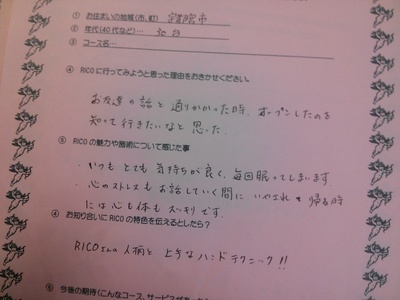 ① お住まいの地域（市、町） 宮崎市
② 年代（40代など）… 30台
③ コース名…
④ RICOに行ってみようと思った理由をおきかせください。
お友達の話と通りかかった時、オープンしたのを
知って行きたいなと思った。
⑤ RICOの魅力や施術について感じた事
・いつもとても気持ちが良く、毎回眠ってしまいます
・心のストレスもお話していく間に いやされて 帰る時
には心も体もスッキリです。
④ お知り合いにRICOの特色を伝えるとしたら？
RICOさんの人柄と 上手なハンドテクニック!!
⑥ 今後の期待（こんなコース、サービスが